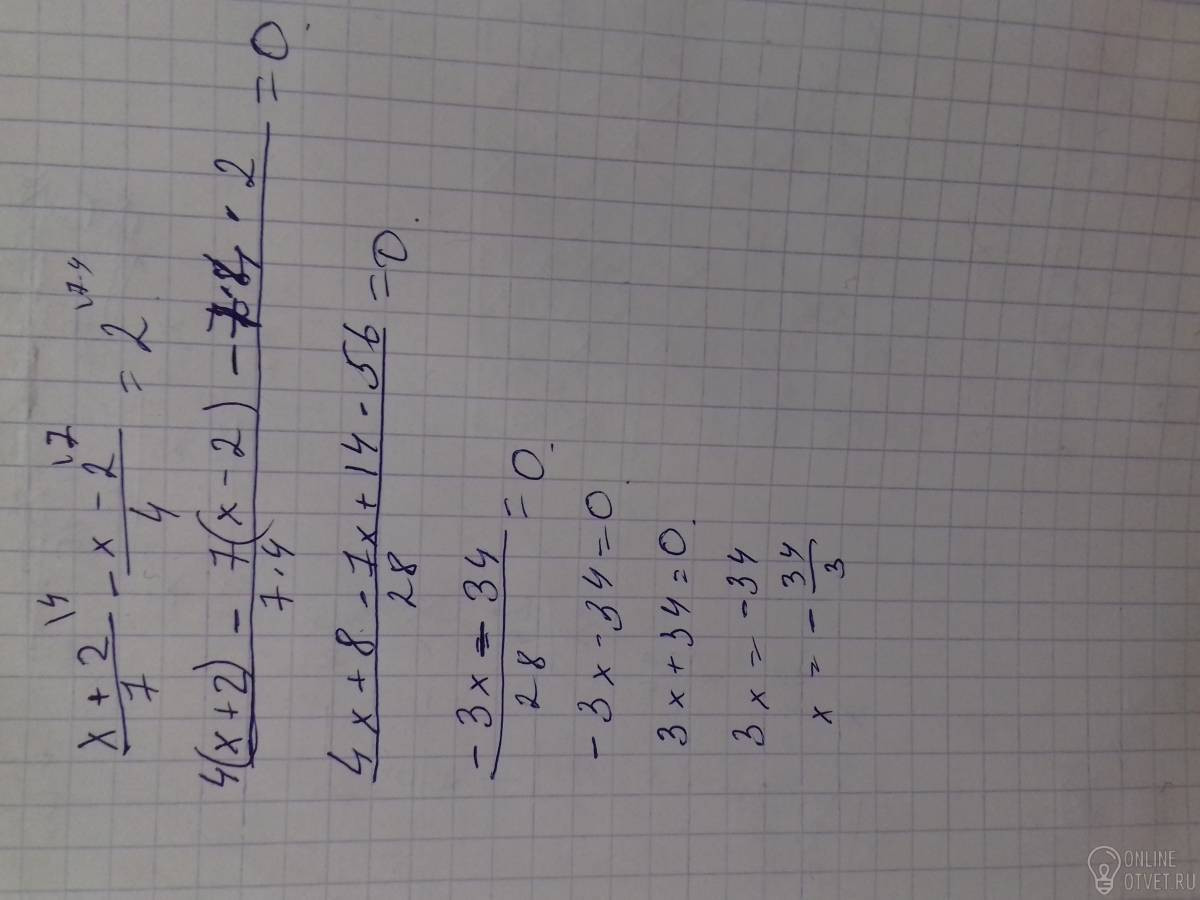 (x + 2)/7 \4 - (x - 2)/4 \7 = 2 \7·4
(4(x+2) - 7(x-2) - · 2)/(7·4) = 0.
(4x + 8 - 7x + 14 - 56)/28 = 0.
(-3x - 34)/28 = 0.
-3x - 34 = 0.
3x + 34 = 0.
3x = -34
x = - 34/3
ONLINE
OTVET.RU